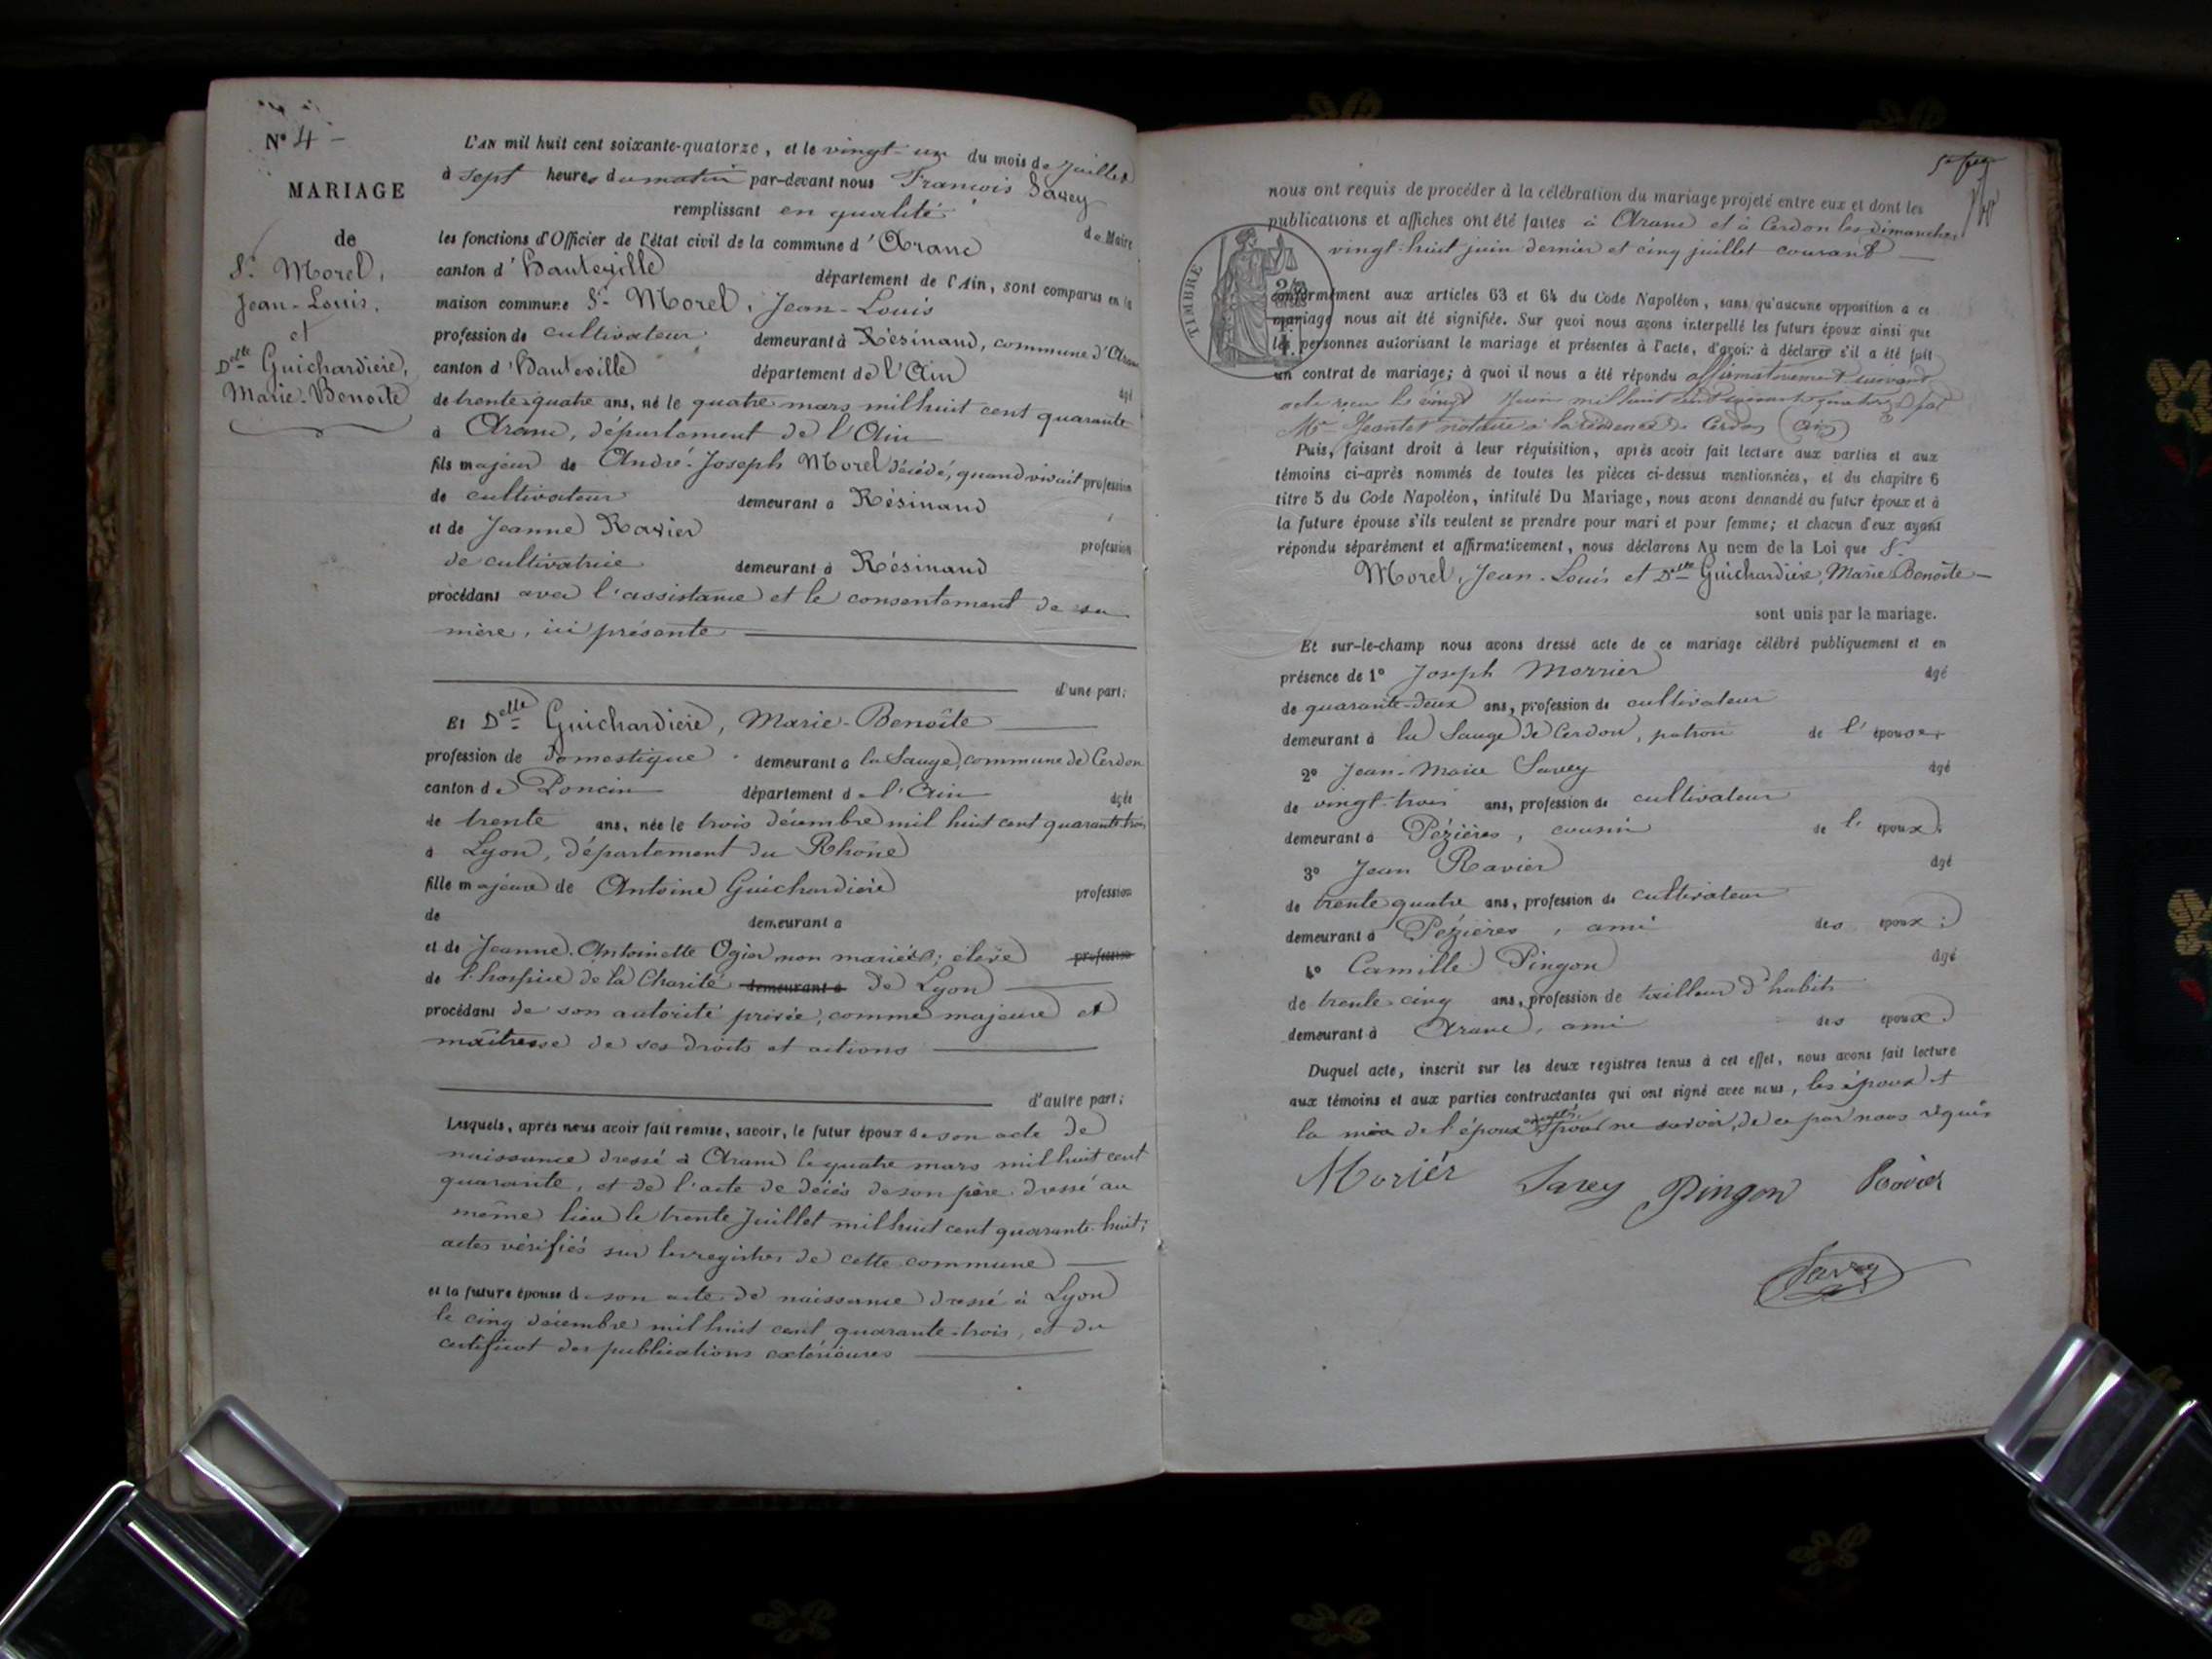 N° 4 -
MARIAGE
de
Sr. Morel,
Jean-Louis,
et
Delle Guichardière,
Marie-Benoîte
L'AN mil huit cent soixante-quatorze, et le vingt-un du mois de Juillet
à sept heures du matin par-devant nous François Savey
remplissant en qualité de Maire
les fonctions d'Officier de l'état civil de la commune d'Aranc
canton d'Hauteville département de l'Ain, sont comparus en la
maison commune Sr. Morel, Jean-Louis
profession de cultivateur demeurant à Résinand, commune d'Aranc
canton d'Hauteville département de l'Ain âgé
de trente-quatre ans, né le quatre mars mil huit cent quarante
à Aranc, département de l'Ain
fils majeur de André-Joseph Morel décédé, quand vivait profession
de cultivateur demeurant à Résinand
et de Jeanne Ravier profession
de cultivatrice demeurant à Résinand
procédant avec l'assistance et le consentement de sa
mère, ici présente
d'une part;
Et Delle Guichardière, Marie-Benoîte
profession de domestique demeurant à la Sauge, commune de Cerdon
canton de Poncin département de l'Ain âgée
de trente ans, née le trois décembre mil huit cent quarante-trois
à Lyon, département du Rhône
fille majeure de Antoine Guichardière profession
de demeurant à
et de Jeanne-Antoinette Ogier non mariés; élève profession
de l'hospice de la Charité demeurant à de Lyon
procédant de son autorité privée, comme majeure et
maîtresse de ses droits et actions
d'autre part;
Lesquels, après nous avoir fait remise, savoir, le futur époux de son acte de
naissance dressé à Aranc le quatre mars mil huit cent
quarante, et de l'acte de décès de son père dressé au
même lieu le trente Juillet mil huit cent quarante-huit;
actes vérifiés sur les registres de cette commune
et la future épouse de son acte de naissance dressé à Lyon
le cinq décembre mil huit cent quarante-trois, et du
certificat des publications extérieures
nous ont requis de procéder à la célébration du mariage projeté entre eux et dont les
publications et affiches ont été faites à Aranc et à Cerdon les dimanches
vingt-huit juin dernier et cinq juillet courant
TIMBRE
conformément aux articles 63 et 64 du Code Napoléon, sans qu'aucune opposition à ce
mariage nous ait été signifiée. Sur quoi nous avons interpellé les futurs époux ainsi que
les personnes autorisant le mariage et présentes à l'acte, d'avoir à déclarer s'il a été fait
un contrat de mariage; à quoi il nous a été répondu affirmativement suivant
acte reçu le vingt Juin mil huit cent soixante quatorze par
Me Jeantet notaire à la résidence de Cerdon (Ain)
Puis, faisant droit à leur réquisition, après avoir fait lecture aux parties et aux
témoins ci-après nommés de toutes les pièces ci-dessus mentionnées, et du chapitre 6
titre 5 du Code Napoléon, intitulé Du Mariage, nous avons demandé au futur époux et à
la future épouse s'ils veulent se prendre pour mari et pour femme; et chacun d'eux ayant
répondu séparément et affirmativement, nous déclarons Au nom de la Loi que Sr.
Morel, Jean-Louis et Delle Guichardière, Marie Benoîte
sont unis par le mariage.
Et sur-le-champ nous avons dressé acte de ce mariage célébré publiquement et en
présence de 1° Joseph Morrier âgé
de quarante-deux ans, profession de cultivateur
demeurant à la Sauge de Cerdon, patron de l'épouse;
2° Jean-Marie Savey âgé
de vingt-trois ans, profession de cultivateur
demeurant à Pézières, cousin de l'époux;
3° Jean Ravier âgé
de trente quatre ans, profession de cultivateur
demeurant à Pézières, ami des époux;
4° Camille Pingon âgé
de trente-cinq ans, profession de tailleur d'habits
demeurant à Aranc, ami des époux
Duquel acte, inscrit sur les deux registres tenus à cet effet, nous avons fait lecture
aux témoins et aux parties contractantes qui ont signé avec nous, les époux et
la mère de l'époux pour ne savoir, de ce par nous requis
Moriér Savey Pingon Ravier
Savey